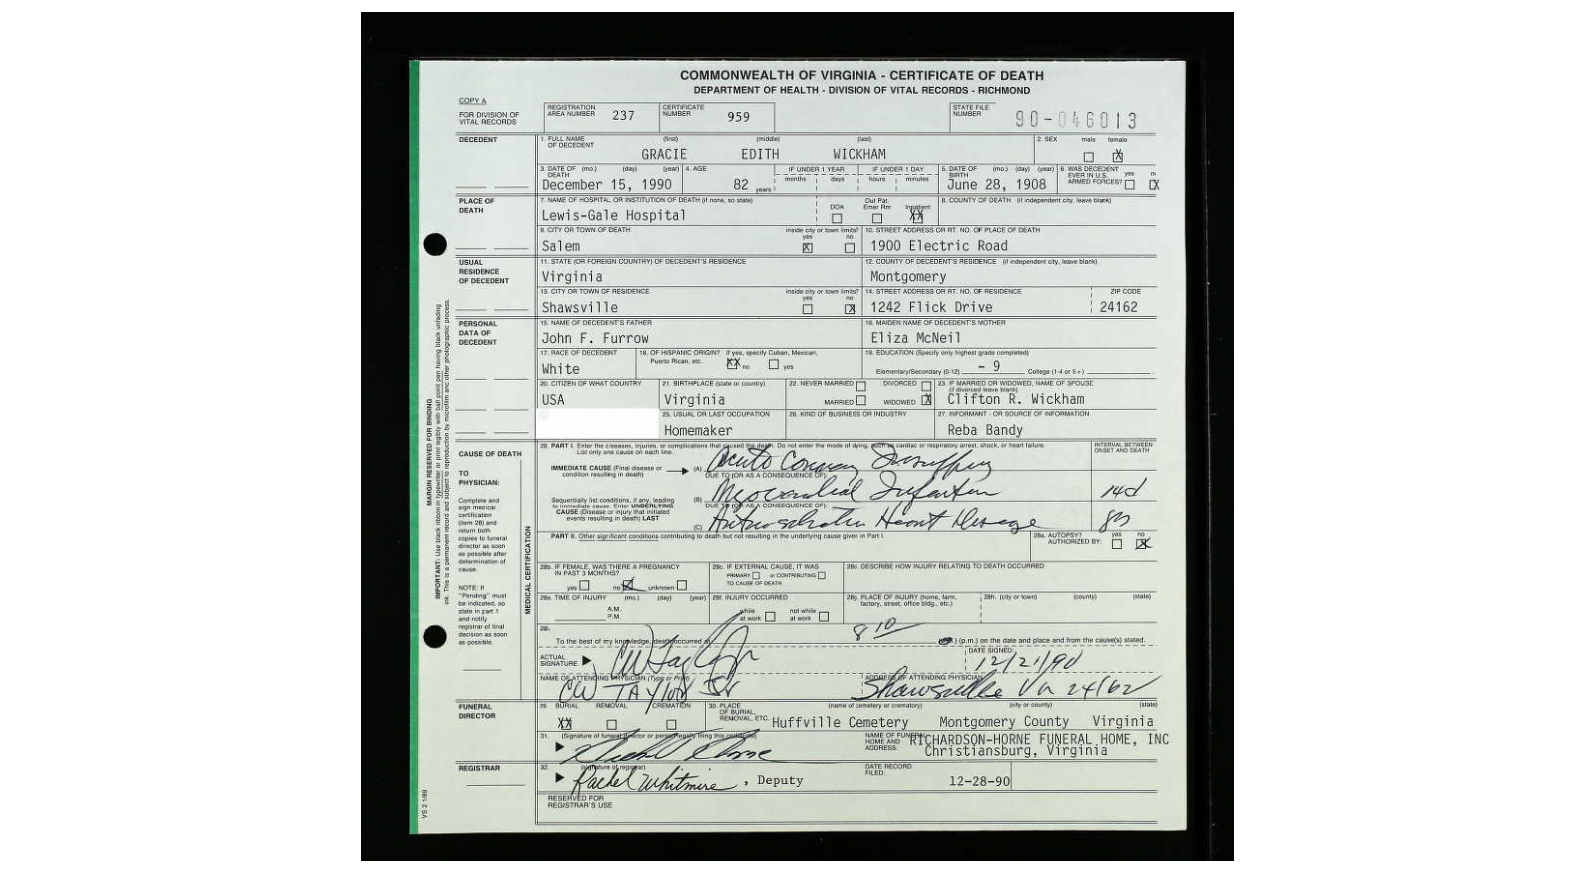 COMMONWEALTH OF VIRGINIA - CERTIFICATE OF DEATH
DEPARTMENT OF HEALTH - DIVISION OF VITAL RECORDS - RICHMOND
COPY A
FOR DIVISION OF
VITAL RECORDS
REGISTRATION
AREA NUMBER 237
CERTIFICATE
NUMBER 959
STATE FILE
NUMBER 90-046013
DECEDENT
1. FULL NAME (first) (middle) (last)
OF DECEDENT
GRACIE EDITH WICKHAM
2. SEX male female X
3. DATE OF (mo.) (day) (year)
DEATH
December 15, 1990
4. AGE
82 years
IF UNDER 1 YEAR
months days
IF UNDER 1 DAY
hours minutes
5. DATE OF (mo.) (day) (year)
BIRTH
June 28, 1908
6. WAS DECEDENT
EVER IN U.S.
ARMED FORCES? yes no X
PLACE OF
DEATH
7. NAME OF HOSPITAL OR INSTITUTION OF DEATH (if none, so state)
Lewis-Gale Hospital
DOA
Out Pat.
Emer Rm
Inpatient
XX
8. COUNTY OF DEATH (if independent city, leave blank)
9. CITY OR TOWN OF DEATH
Salem
inside city or town limits?
yes no
X
10. STREET ADDRESS OR RT. NO. OF PLACE OF DEATH
1900 Electric Road
USUAL
RESIDENCE
OF DECEDENT
11. STATE (OR FOREIGN COUNTRY) OF DECEDENT'S RESIDENCE
Virginia
12. COUNTY OF DECEDENT'S RESIDENCE (if independent city, leave blank)
Montgomery
13. CITY OR TOWN OF RESIDENCE
Shawsville
inside city or town limits?
yes no
X
14. STREET ADDRESS OR RT. NO. OF RESIDENCE
1242 Flick Drive
ZIP CODE
24162
PERSONAL
DATA OF
DECEDENT
15. NAME OF DECEDENT'S FATHER
John F. Furrow
16. MAIDEN NAME OF DECEDENT'S MOTHER
Eliza McNeil
17. RACE OF DECEDENT
White
18. OF HISPANIC ORIGIN? If yes, specify Cuban, Mexican,
Puerto Rican, etc. XX no yes
19. EDUCATION (Specify only highest grade completed)
Elementary/Secondary (0-12) - 9 College (1-4 or 5+)
20. CITIZEN OF WHAT COUNTRY
USA
21. BIRTHPLACE (state or country)
Virginia
22. NEVER MARRIED DIVORCED
MARRIED WIDOWED X
23. IF MARRIED OR WIDOWED, NAME OF SPOUSE
(if divorced leave blank)
Clifton R. Wickham
25. USUAL OR LAST OCCUPATION
Homemaker
26. KIND OF BUSINESS OR INDUSTRY
27. INFORMANT - OR SOURCE OF INFORMATION
Reba Bandy
MARGIN RESERVED FOR BINDING
IMPORTANT: Use black ribbon in typewriter or print legibly with ball point pen having black unfading
ink. This is a permanent record and subject to reproduction by microfilm and other photographic process.
CAUSE OF DEATH
TO
PHYSICIAN:
Complete and
sign medical
certification
(item 28) and
return both
copies to funeral
director as soon
as possible after
determination of
cause.
NOTE: If
"Pending" must
be indicated, so
state in part 1
and notify
registrar of final
decision as soon
as possible.
MEDICAL CERTIFICATION
28. PART I. Enter the diseases, injuries, or complications that caused the death. Do not enter the mode of dying, such as cardiac or respiratory arrest, shock, or heart failure.
List only one cause on each line.
INTERVAL BETWEEN
ONSET AND DEATH
IMMEDIATE CAUSE (Final disease or
condition resulting in death)
(A) Acute Coronary
DUE TO (OR AS A CONSEQUENCE OF):
Sequentially list conditions, if any, leading
to immediate cause. Enter UNDERLYING
CAUSE (Disease or injury that initiated
events resulting in death) LAST
(B) Myocardial Infarction 14d
DUE TO (OR AS A CONSEQUENCE OF):
(C) Heart Disease
PART II. Other significant conditions contributing to death but not resulting in the underlying cause given in Part I.
28a. AUTOPSY?
AUTHORIZED BY: yes no X
28b. IF FEMALE, WAS THERE A PREGNANCY
IN PAST 3 MONTHS?
yes no X unknown
28c. IF EXTERNAL CAUSE, IT WAS
PRIMARY or CONTRIBUTING
TO CAUSE OF DEATH
28d. DESCRIBE HOW INJURY RELATING TO DEATH OCCURRED
28e. TIME OF INJURY (mo.) (day) (year)
A.M.
P.M.
28f. INJURY OCCURRED
while
at work
not while
at work
28g. PLACE OF INJURY (home, farm,
factory, street, office bldg., etc.)
28h. (city or town) (county) (state)
28i.
To the best of my knowledge, death occurred at 8 10 (p.m.) on the date and place and from the cause(s) stated.
ACTUAL
SIGNATURE CW Taylor Jr
DATE SIGNED:
12/21/90
NAME OF ATTENDING PHYSICIAN (Type or Print)
CW TAYLOR Jr
ADDRESS OF ATTENDING PHYSICIAN
Shawsville Va 24162
FUNERAL
DIRECTOR
29. BURIAL REMOVAL CREMATION
XX
30. PLACE
OF BURIAL,
REMOVAL, ETC.
(name of cemetery or crematory) (city or county) (state)
Huffville Cemetery Montgomery County Virginia
31. (Signature of funeral director or person legally filing this certificate)
NAME OF FUNERAL
HOME AND
ADDRESS:
RICHARDSON-HORNE FUNERAL HOME, INC
Christiansburg, Virginia
REGISTRAR
32. (signature of registrar)
Rachel Whitmire, Deputy
DATE RECORD
FILED:
12-28-90
RESERVED FOR
REGISTRAR'S USE
VS 2 1/89